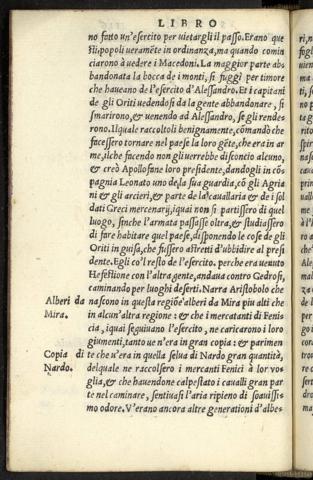 LIBRO
no fatto un'esercito per uietargli il passo. Erano que
sti popoli ueramẽte in ordinanza, ma quando comin
ciarono à uedere i Macedoni. La maggior parte ab-
bandonata la bocca de i monti, si fuggì per timore
che haueano de l'esercito d'Alessandro. Et i capitani
de gli Oriti uedendosi da la gente abbandonare, si
smarirono, & uenendo ad Alessandro, se gli rende-
rono. Il quale raccoltoli benignamente, comãdò che
facessero tornare nel paese la loro gẽte, che era in ar
me, ilche facendo non gli uerrebbe discontio alcuno,
& creò Apollofane loro presidente, dandogli in cõ-
pagnia Leonato uno de la sua guardia, cõ gli Agria
ni & gli arcieri, & parte de la cauallaria & de i sol
dati Greci mercenarij, iquai non si partissero di quel
luogo, finche l'armata passasse oltra, & studiassero
di fare habitare quel paese, disponendo le cose de gli
Oriti in guisa, che fussero astretti d'ubbidire al presi
dente. Egli co'l resto de l'esercito. perche era uenuto
Hefestione con l'altra gente, andaua contro Gedrosi,
caminando per luoghi deserti. Narra Aristobolo che
Alberi da nascono in questa regiõe alberi da Mira piu alti che
Mira. in alcun'altra regione: & che i mercatanti di Feni-
cia, iquai seguiuano l'esercito, ne caricarono i loro
giumenti, tanto ue n'era in gran copia: & parimen
Copia di te che n'era in quella selua di Nardo gran quantità,
Nardo. del quale ne raccolsero i mercanti Fenici à lor uo-
glia, & che hauendone calpestato i caualli gran par
te nel caminare, sentiuasi l'aria ripieno di soauissi-
mo odore. V'erano ancora altre generationi d'albe-